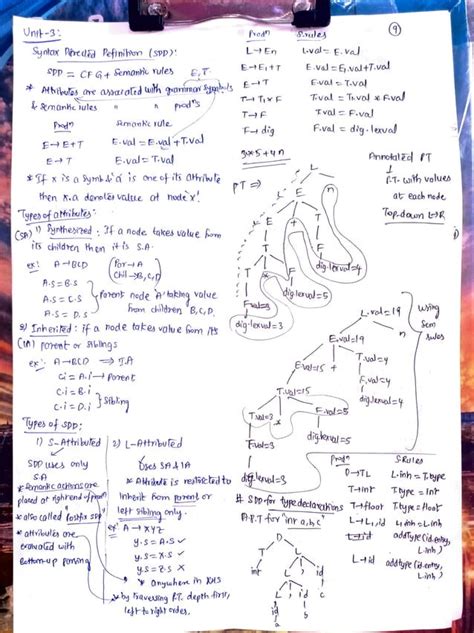 Unit-3:
Syntax Directed Definition (SDD):
SDD = CFG + Semantic rules
E,T
* Attributes are associated with grammar symbols
& Semantic rules " " prodns
Prodn Semantic rule
E→E+T E.val = E.val + T.val
E→T E.val = T.val
* If x is a symbol & a is one of its attribute
then x.a denotes value at node 'x'.
Types of attributes:
(SA) 1) Synthesized: If a node takes value from
its children then it is S.A.
ex: A→BCD (Par→A
Chil→B,C,D)
A.S = B.S
A.S = C.S
A.S = D.S
Parent node 'A' taking value
from children B,C,D.
2) Inherited: if a node takes value from its
(IA) parent or siblings
ex: A→BCD ⇒ I.A
C.i = A.i → Parent
C.i = B.i
C.i = D.i
Sibling
Types of SDD:
1) S-Attributed
SDD uses only
S.A
* Semantic actions are
placed at right end of prodn
* also called "Postfix SDD"
* attributes are
evaluated with
Bottom-up parsing
2) L-Attributed
Uses SA & IA
* Attribute is restricted to
inherit from parent or
left sibling only.
ex: A→XYZ
Y.S = A.S ✓
Y.S = X.S ✓
Y.S = Z.S ×
* Anywhere in RHS
* by traversing P.T. depth first,
left to right order.
9
Prodn S.rules
L→En L.val = E.val
E→E1+T E.val = E1.val + T.val
E→T E.val = T.val
T→T1*F T.val = T1.val * F.val
T→F T.val = F.val
F→dig F.val = dig.lexval
3*5+4n
Annotated PT
P.T. with values
at each node
Top-down L→R
PT ⇒
L
E n
E + T
T F
T * F dig.lexval=4
F dig.lexval=5
F.val=3
dig.lexval=3
L.val=19
E.val=19 n
E.val=15 + T.val=4
T.val=15 F.val=4
T.val=3 * F.val=5 dig.lexval=4
F.val=3 dig.lexval=5
dig.lexval=3
Using
Sem
rules
# SDD for type declarations
A.P.T for "int a,b,c"
D
T L
int L , id
L , id c
id b
a
Prodn S.Rules
D→TL L.inh = T.type
T→int T.type = int
T→float T.type = float
L→L1,id L1.inh = L.inh
addType(id.entry,
L.inh)
L→id addType(id.entry,
L.inh)